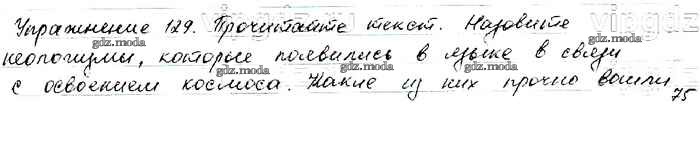 Упражнение 129. Прочитайте текст. Назовите
неологизмы, которые появились в языке в связи
с освоением космоса. Какие из них прочно вошли
75
gdz.moda
gdz.moda
gdz.moda
gdz.moda
gdz.moda
gdz.moda
vip.gdz